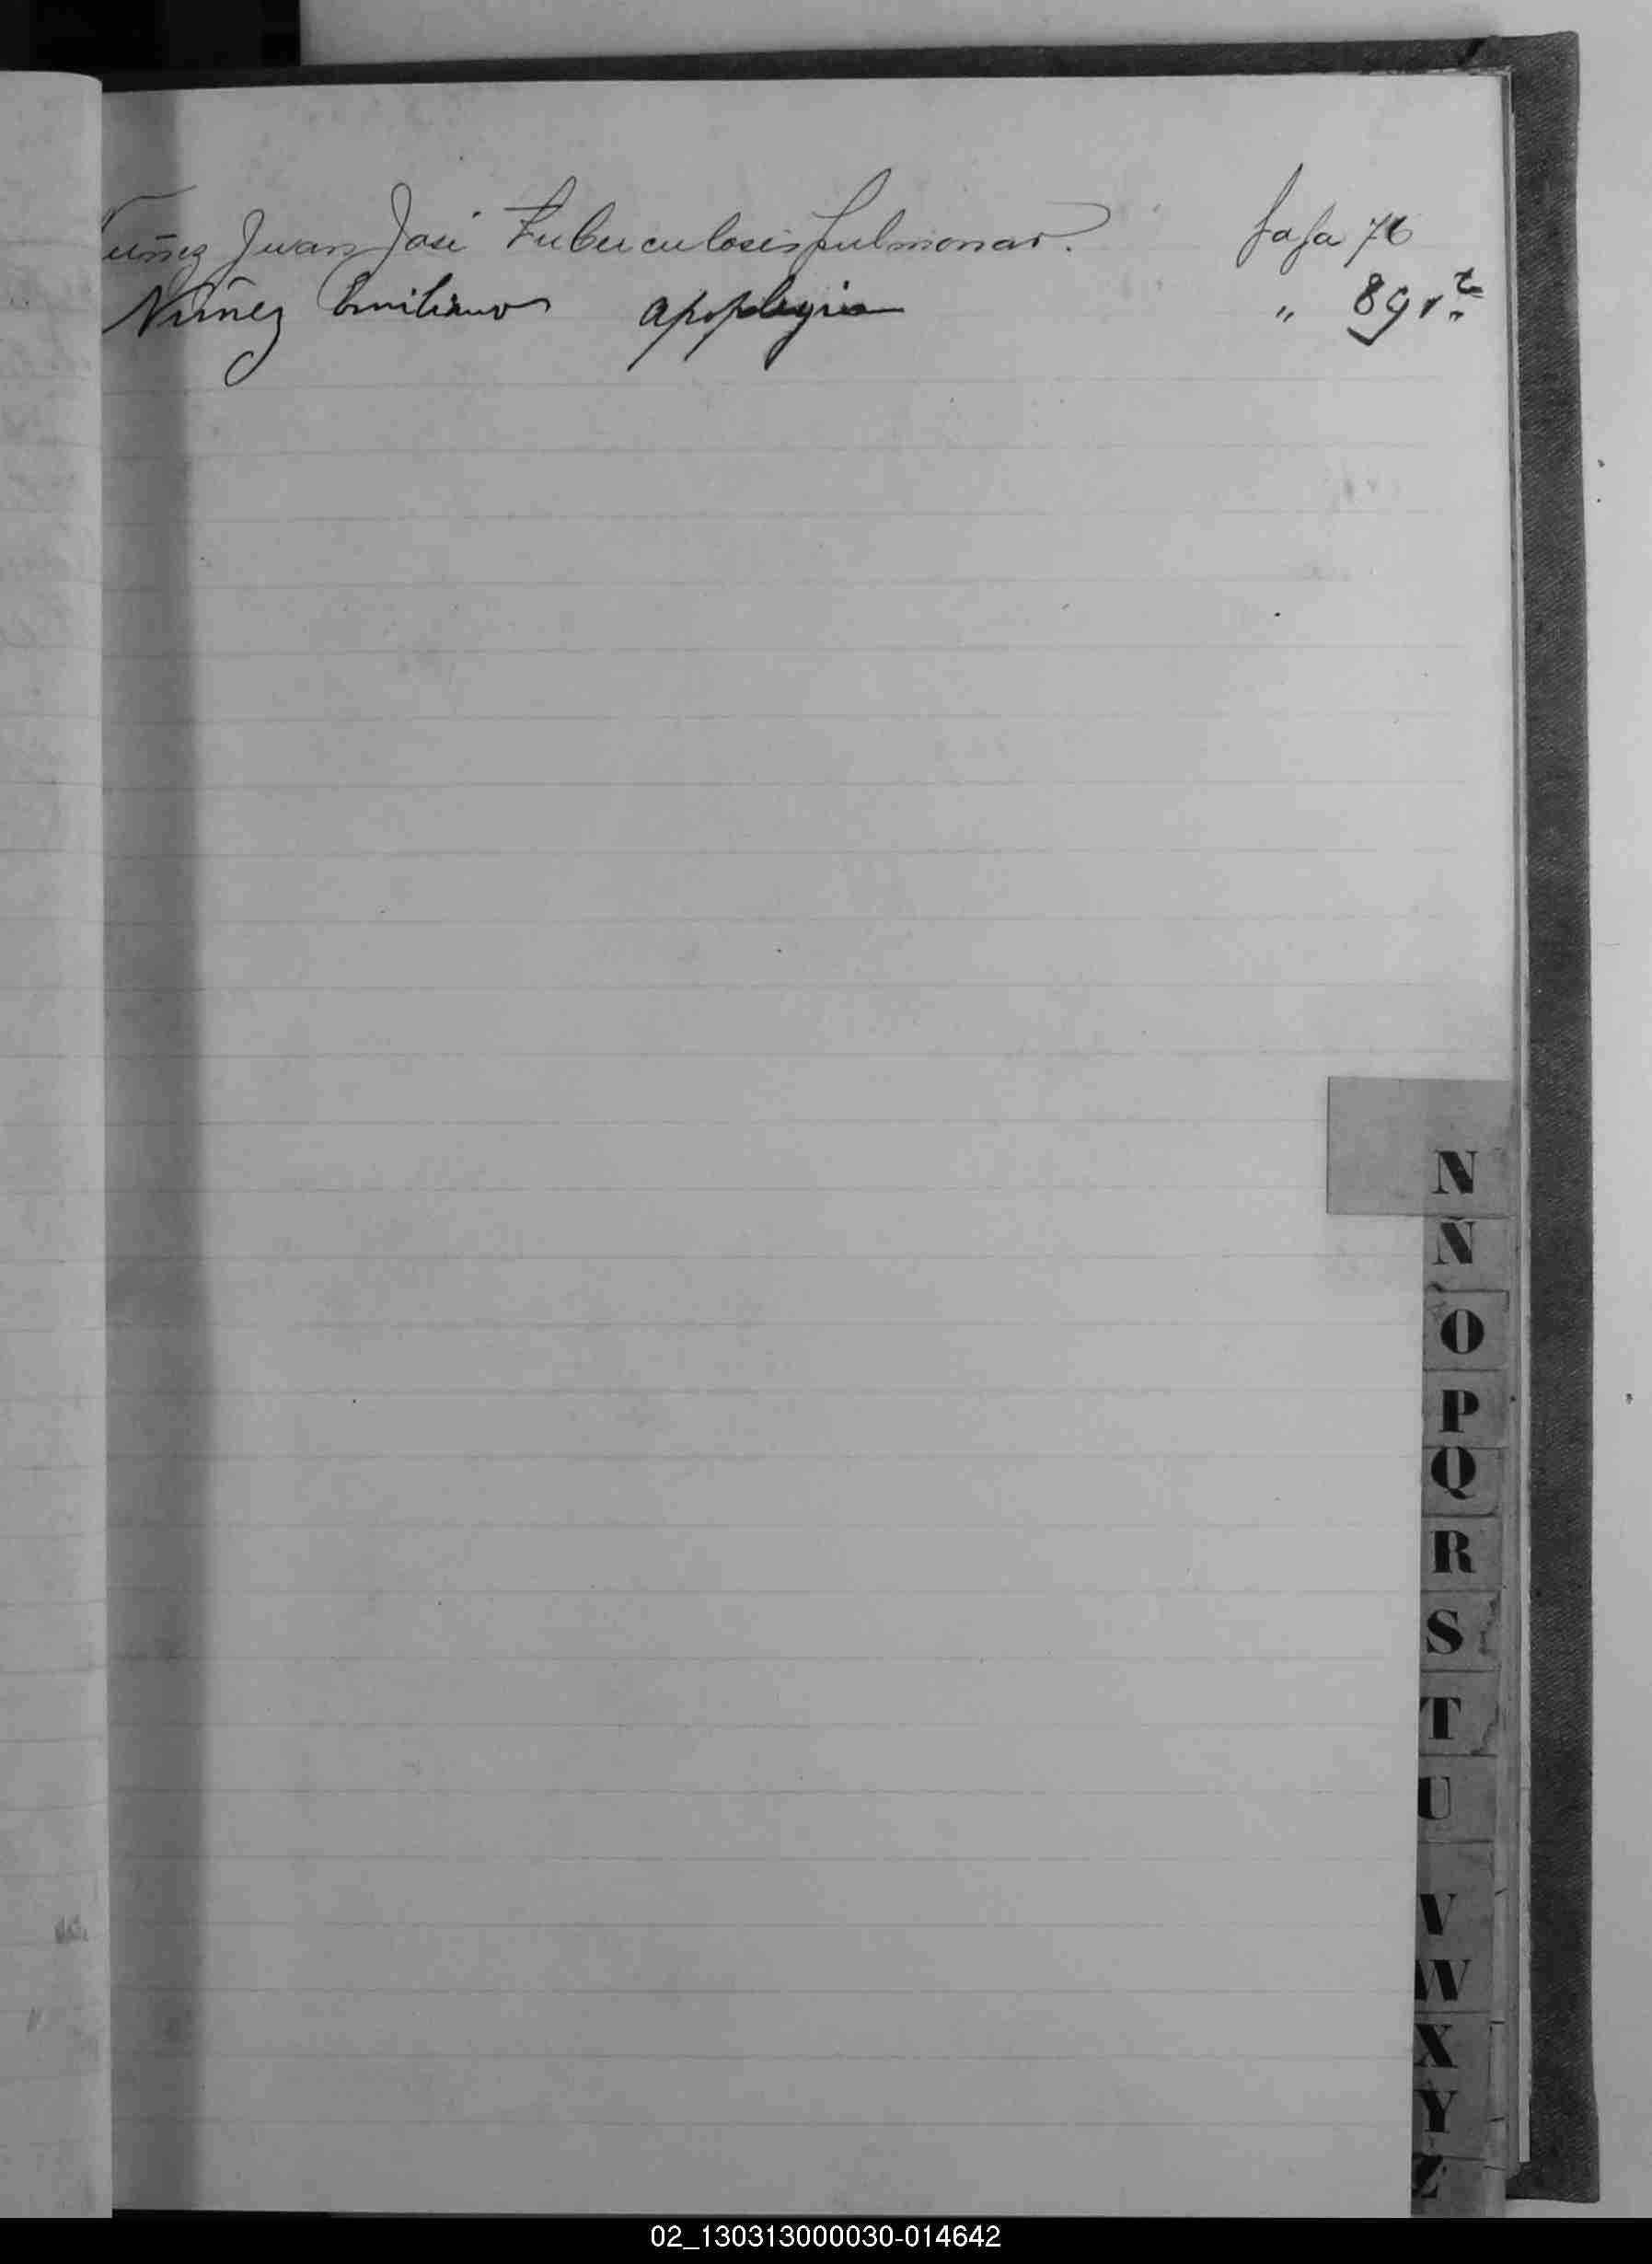 Nuñez Juan José Tuberculosis pulmonar. foja 76
Nuñez Emiliano apoplegia " 89 v.ta
N
Ñ
O
P
Q
R
S
T
U
V
W
X
Y
Z
02_130313000030-014642